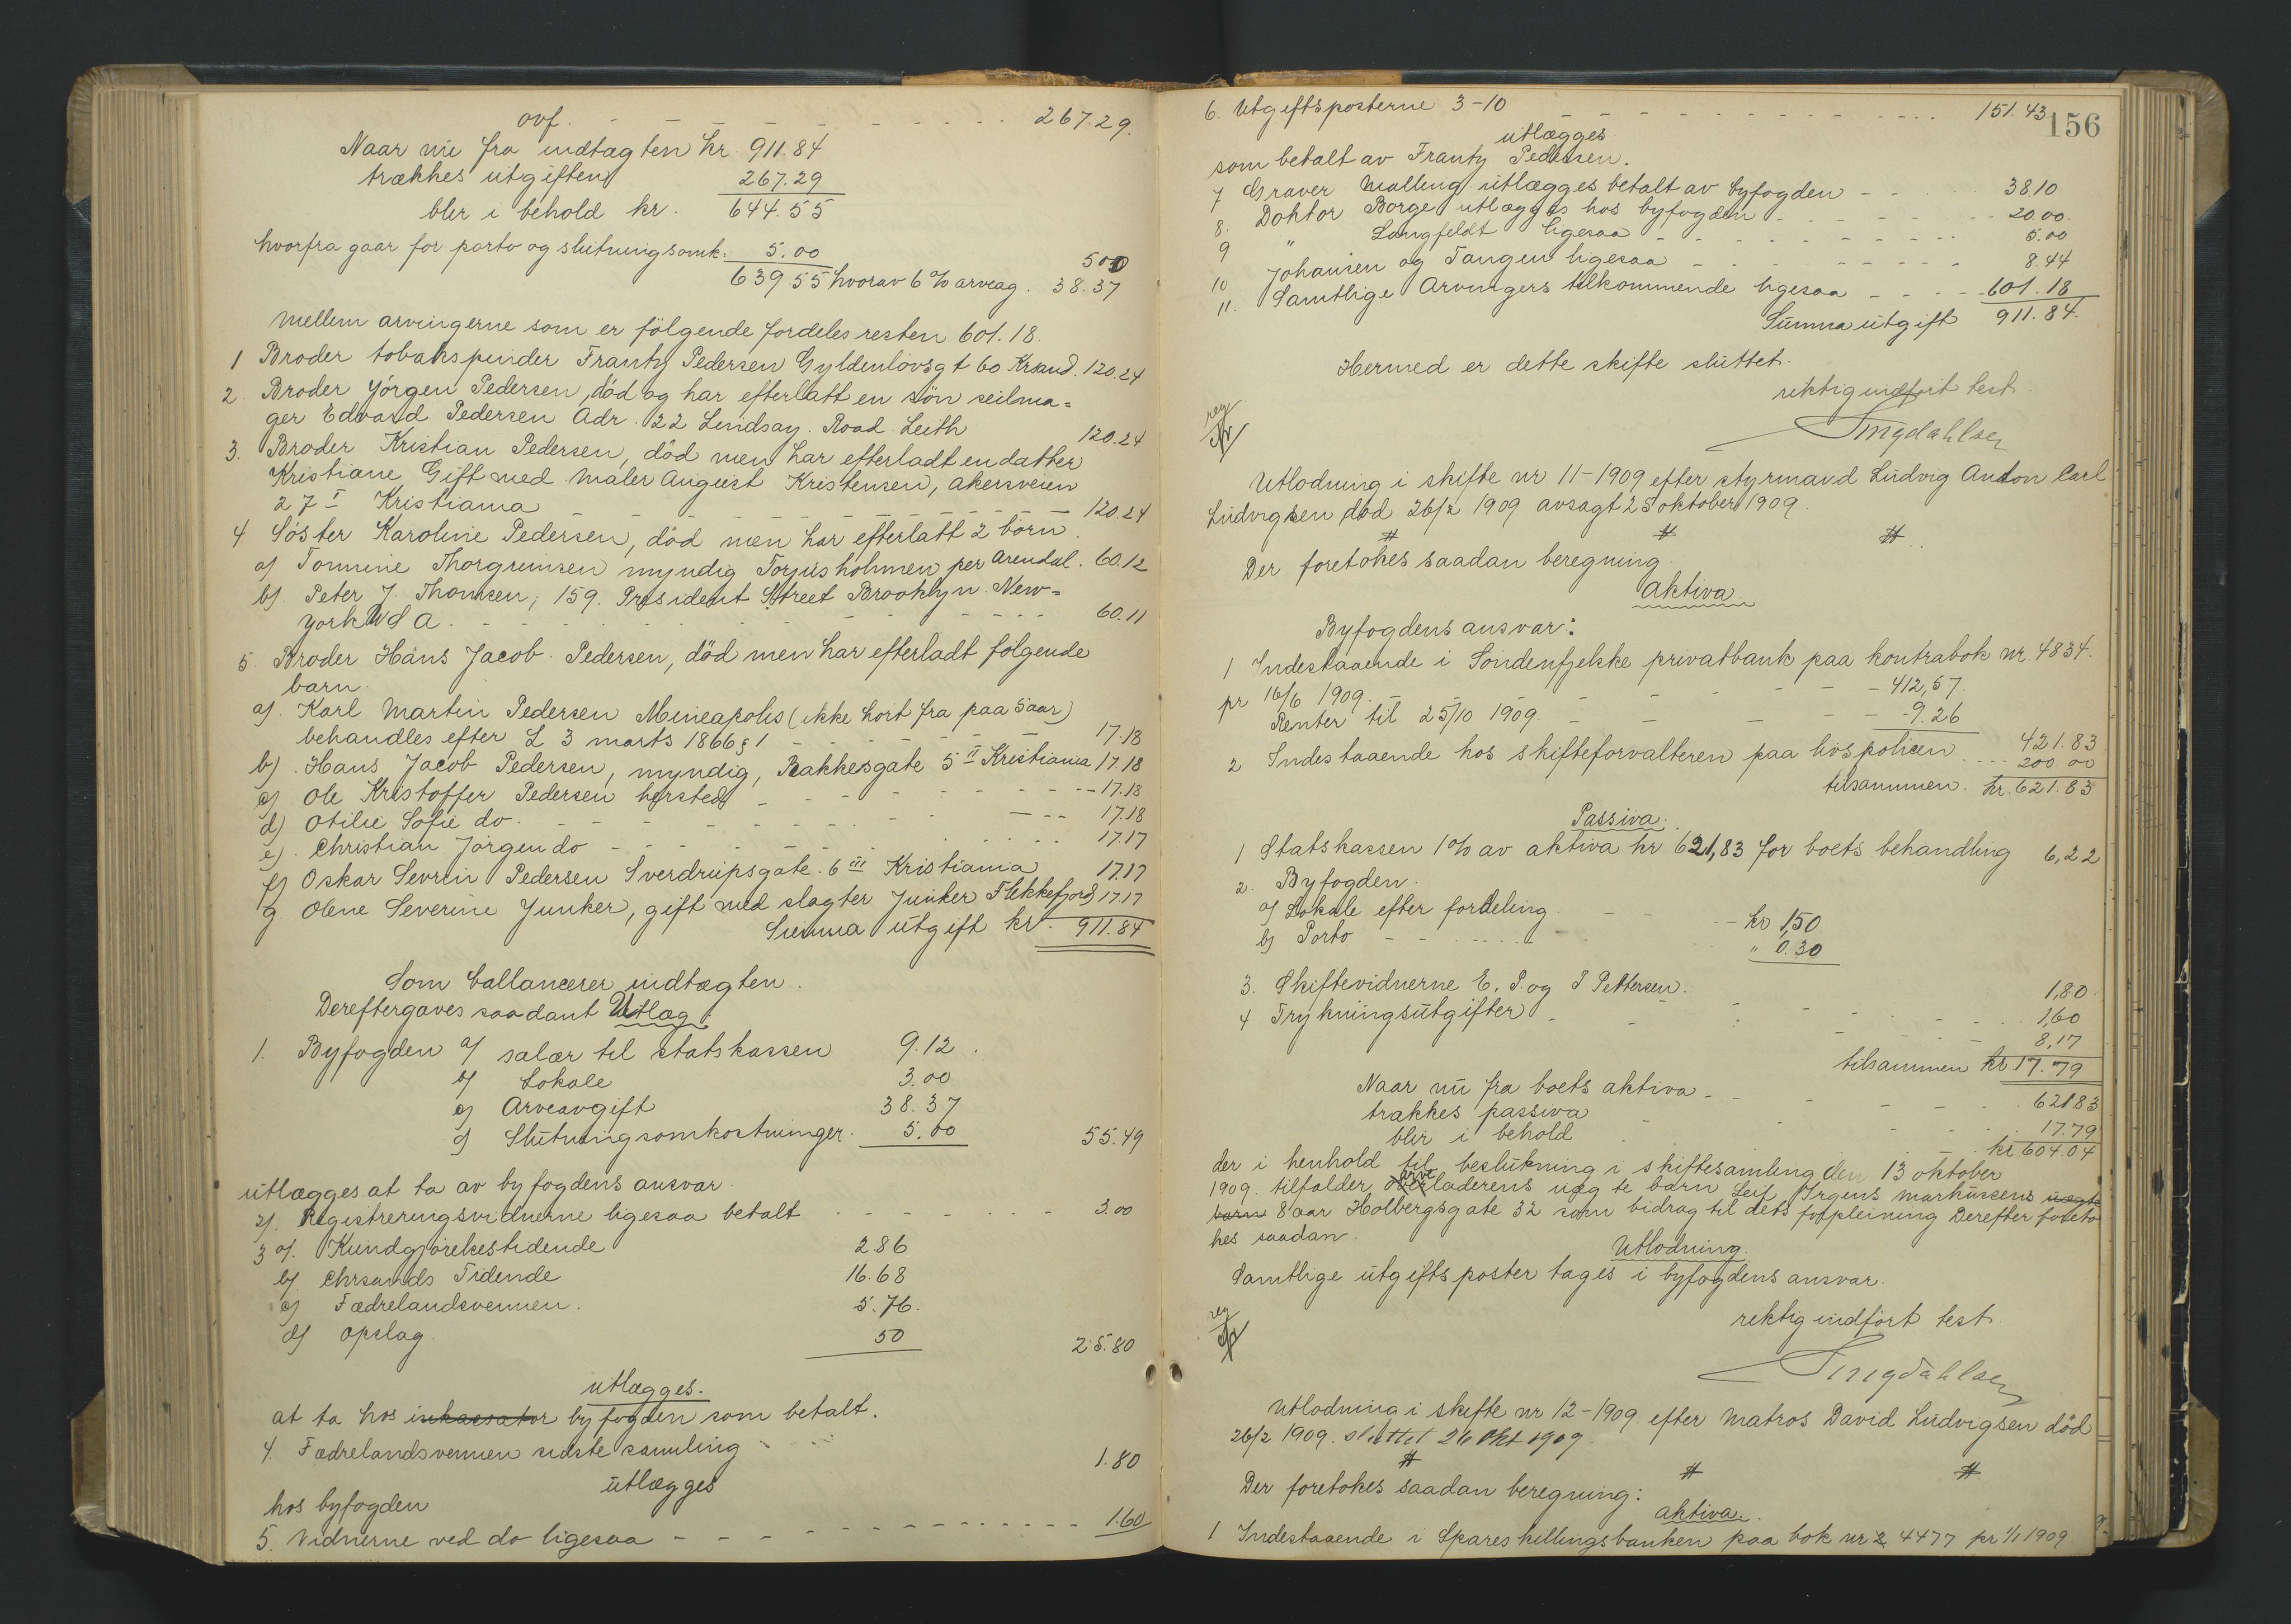 ovf. 267.29.
Naar nu fra indtægten kr. 911.84
trækkes utgiften 267.29
blir i behold kr. 644.55
hvorfra gaar for porto og slutningsomk: 5.00 5 00
639 55 hvorav 6% arveag. 38.37
Mellem arvingerne som er følgende fordeles resten 601.18.
1 Broder tobakspinder Frantz Pedersen Gyldenløvsgt 60 Krsand. 120.24
2. Broder Jörgen Pedersen, död og har efterlatt en sön seilma=
ger Edvard Pedersen Adr. 22 Lindsay. Road. Leith 120.24
3. Broder Kristian Pedersen, död men har efterladt en datter
Kristiane Gift med Maler August Kristensen, akersveien
27 I Kristiania 120.24
4 Söster Karoline Pedersen, död men har efterlatt 2 börn.
a) Tomine Thorgrimsen myndig Torjusholmen per Arendal. 60.12
b). Peter J. Thomsen, 159. President Street Brooklyn. New=
york U S A. 60.11
5. Broder Hans Jacob Pedersen, död men har efterladt fölgende
barn.
a). Karl Martin Pedersen Mineapolis (ikke hört fra paa 5 aar)
behandles efter L 3 marts 1866 § 1 17.18
b). Hans Jacob Pedersen, myndig, Bakkesgate 5 II Kristiania 17.18
c) Ole Kristoffer Pedersen hersteds 17.18
d) Otilie Sofie do. 17.18
e). Christian Jörgen do 17.17
f) Oskar Sevrin Pedersen Sverdrupsgate. 6 III Kristiania 17.17
g. Olene Severine Junker, gift med slagter Junker Flekkefjord 17.17
Summa utgift kr. 911.84
Som ballancerer indtægten.
Dereftergaves saadant Utlæg
1. Byfogden a) salær til statskassen 9.12.
b) Lokale 3.00
c) Arveavgift 38.37
d) Slutningsomkostninger. 5.00 55.49
utlægges at ta av byfogdens ansvar.
2). Registreringsvidnerne ligesaa betalt 3.00
3 a). Kundgjörelsestidende 2 86
b). Chrsands Tidende 16.68
c) Fædrelandsvennen. 5.76.
d) opslag. 50 25.80
utlægges.
at ta hos inkassator byfogden som betalt.
4. Fædrelandsvennen sidste samling 1.80
utlægges
hos byfogden
5. Vidnerne ved do ligesaa 1.60
6. Utgiftsposterne 3-10 151.43
156
utlægges.
som betalt av Frantz Pedersen.
7 Graver Malling utlægges betalt av byfogden 38 10
8. Doktor Borge utlægges hos byfogden 20.00.
9 " Langfeldt ligesaa 5.00
10 Johansen og Tangen ligesaa 8.44
11. Samtlige Arvingers tilkommende ligesaa 601.18
Summa utgift 911.84.
Hermed er dette skifte sluttet.
riktig indfört test.
Singdahlsen
reg
Utlodning i skifte nr 11-1909 efter styrmand Ludvig Anton Carl
Ludvigsen död 26/2 1909 avsagt 25 oktober 1909.
Der foretokes saadan beregning.
Aktiva.
Byfogdens ansvar:
1 Indestaaende i Söndenfjelske privatbank paa kontrabok nr. 4834.
pr 16/6 1909. 412,57.
Renter til 25/10 1909. 9.26
421.83
2 Indestaaende hos skifteforvalteren paa hospolicen 200 00
tilsammen. kr. 621.83
Passiva.
1 Statskassen 1% av aktiva kr 621,83 for boets behandling 6,22
2. Byfogden.
a) Lokale efter fordeling. kr 1,50
b) Porto " 0.30
1,80.
3. Skiftevidnerne E. P. og S Pettersen. 1,60
4 Trykningsutgifter 8,17
tilsammen kr 17.79
Naar nu fra boets aktiva 621 83
trækkes passiva 17.79
blir i behold kr. 604.04
der i henhold til beslutning i skiftesamling den 13 oktober
1909. tilfalder arveladerens uægte barn Leif Irgens Markussens uægte
barn 8 aar Holbergsgate 32 som bidrag til dets forpleining Derefter foreto
kes saadan.
Utlodning.
Samtlige utgiftsposter tages i byfogdens ansvar.
riktig indfört test.
Singdahlsen
reg
Utlodning i skifte nr 12-1909. efter Matros David Ludvigsen död
26/2 1909. sluttet 26 Okt 1909.
Der foretokes saadan beregning:
aktiva.
1 Indestaaende i Spareskillingsbanken paa bok nr 4477 pr 1/1 1909